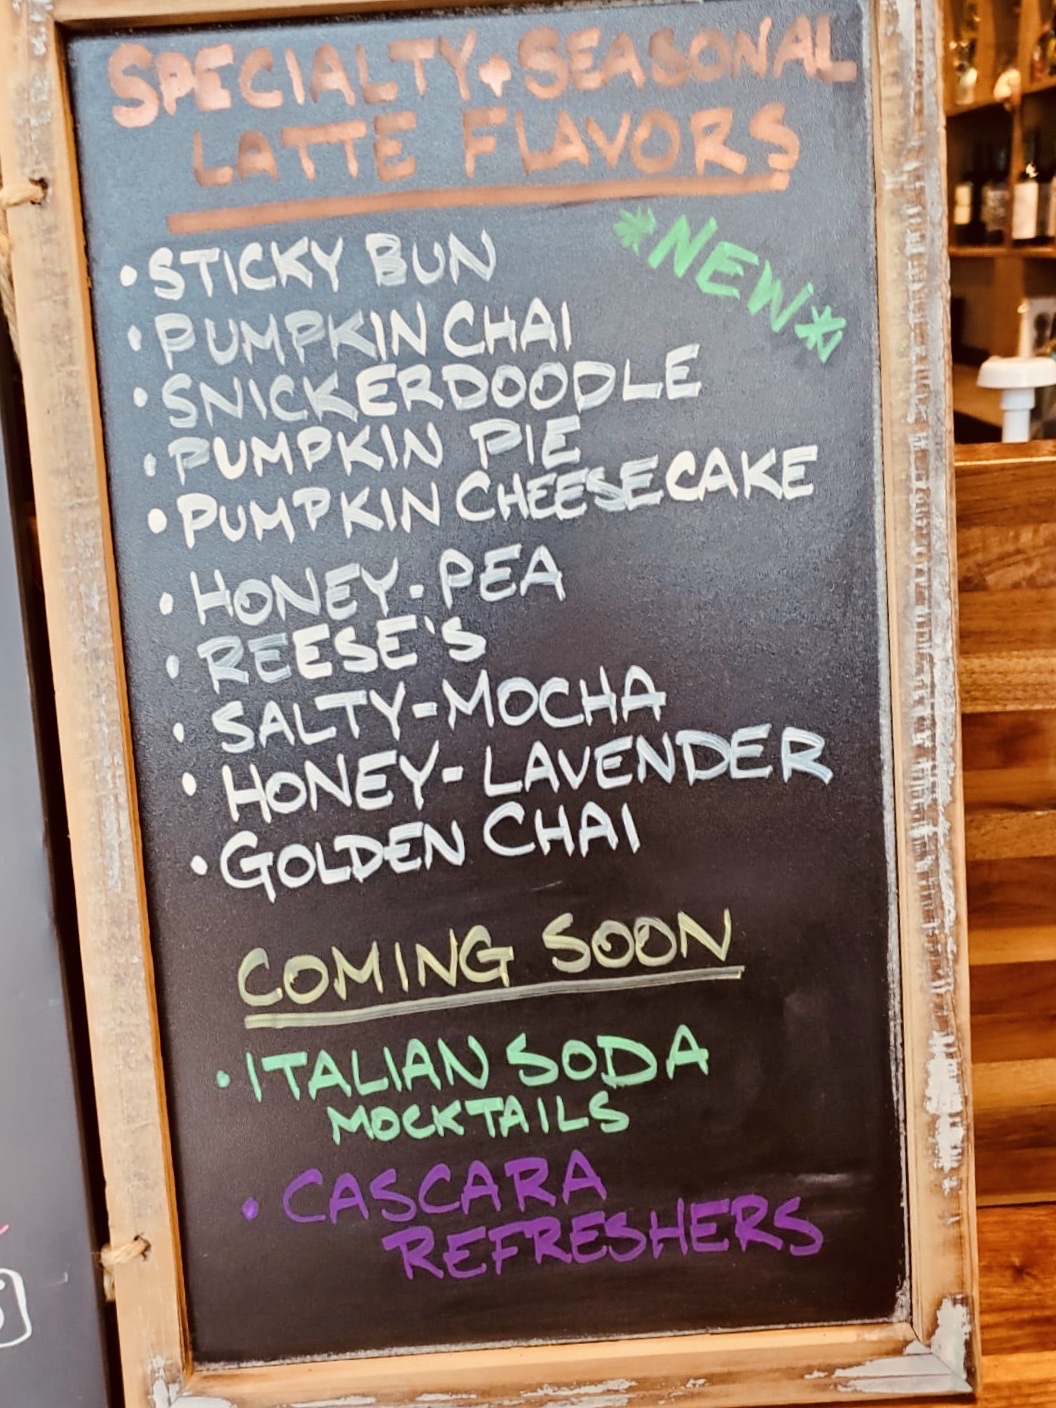 SPECIALTY + SEASONAL
LATTE FLAVORS
*NEW*
• STICKY BUN
• PUMPKIN CHAI
• SNICKERDOODLE
• PUMPKIN PIE
• PUMPKIN CHEESECAKE
• HONEY-PEA
• REESE'S
• SALTY-MOCHA
• HONEY-LAVENDER
• GOLDEN CHAI
COMING SOON
• ITALIAN SODA
MOCKTAILS
• CASCARA
REFRESHERS